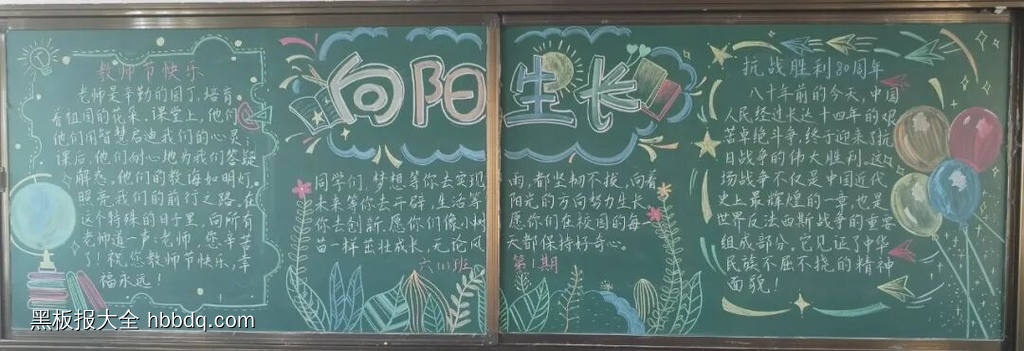 教师节快乐
老师是辛勤的园丁,培育
着祖国的花朵。课堂上,他们
他们用智慧启迪我们的心灵;
课后,他们耐心地为我们答疑
解惑。他们的教诲如明灯,
照亮我们的前行之路。在
这个特殊的日子里,向所有
老师道一声:老师,您辛苦
了!祝您教师节快乐,幸
福永远!
向阳生长
同学们,梦想等你去实现
未来等你去开辟,生活等
你去创新。愿你们像小树
苗一样茁壮成长,无论风
六(1)班
雨,都坚韧不拔,向着
阳光的方向努力生长
愿你们在校园的每一
天都保持好奇心。
第1期
抗战胜利80周年
八十年前的今天,中国
人民经过长达十四年的艰
苦卓绝斗争,终于迎来了抗
日战争的伟大胜利。这
场战争不仅是中国近代
史上最辉煌的一章,也是
世界反法西斯战争的重要
组成部分。它见证了中华
民族不屈不挠的精神
面貌!
黑板报大全 hbbdq.com